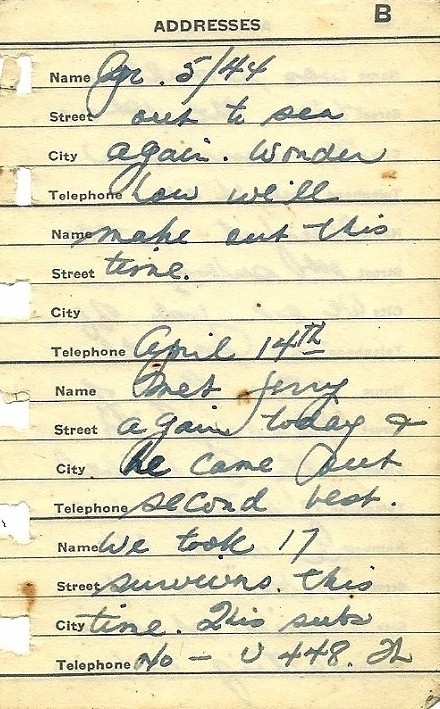 ADDRESSES B
Name Apr. 5/44
Street out to sea
City again. Wonder
Telephone how we'll
Name make out this
Street time.
City
Telephone April 14th
Name Met Jerry
Street again today &
City he came out
Telephone second best.
Name We took 17
Street survivors this
City time. His subs
Telephone No – U 448.